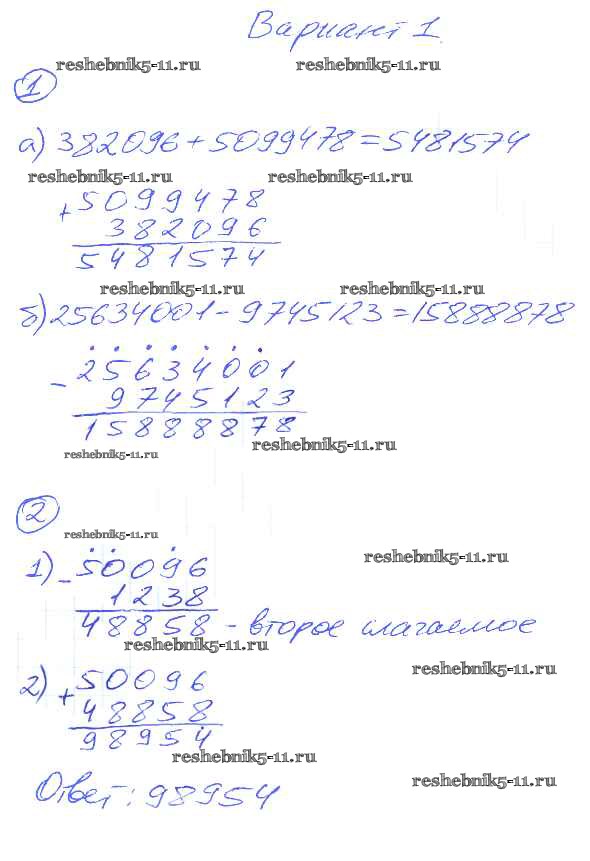 Вариант 1
reshebnik5-11.ru reshebnik5-11.ru
1
а) 382096+5099478=5481574
reshebnik5-11.ru reshebnik5-11.ru
+ 5099478
382096
5481574
reshebnik5-11.ru reshebnik5-11.ru
б) 25634001-9745123=15888878
- 25634001
9745123
15888878
reshebnik5-11.ru
reshebnik5-11.ru
2
reshebnik5-11.ru
reshebnik5-11.ru
1) - 50096
1238
48858 - второе слагаемое
reshebnik5-11.ru
reshebnik5-11.ru
2) + 50096
48858
98954
reshebnik5-11.ru
reshebnik5-11.ru
Ответ: 98954